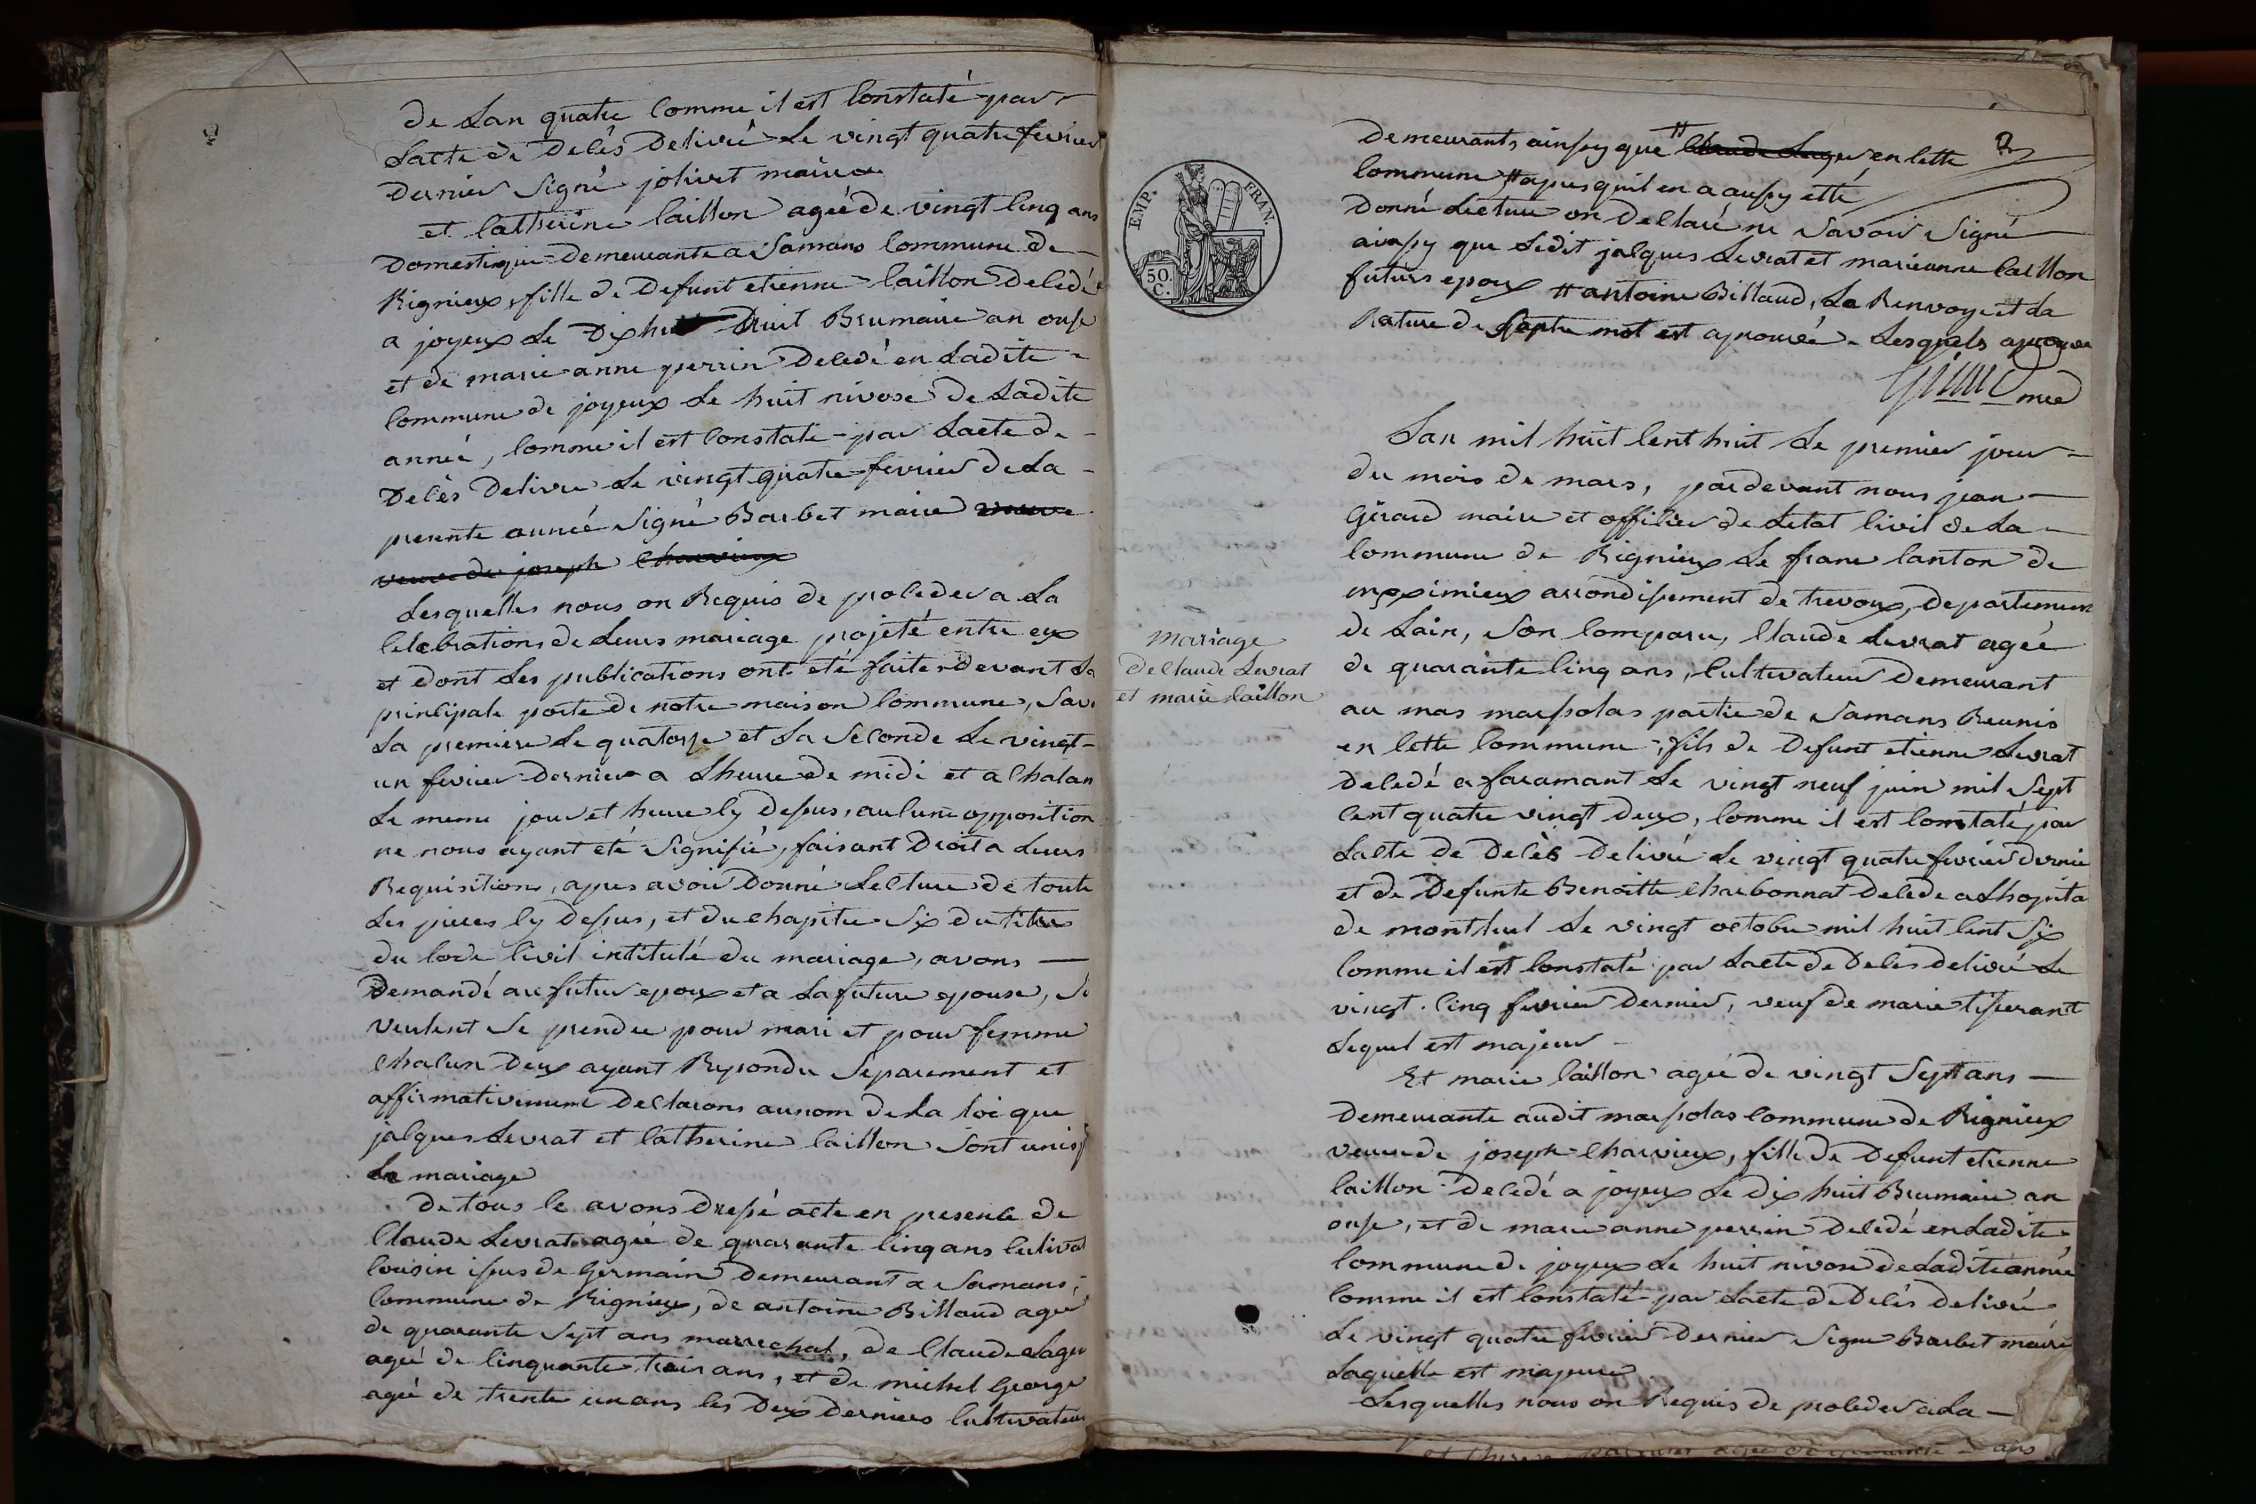 de Lan quatre Comme il est Constaté par
Lacte de decès delivré Le vingt quatre fevrier
dernier Signé jolivet maire
et Catherine Caillon ageé de vingt Cinq ans
domestique demeurante a Samans Commune de
Rignieux, fille de defunt etienne Caillon decedé
a joyeux Le dix huit Brumaire an onze
et de marie anne perrin decedé en Ladite
Commune de joyeux Le huit nivose de Ladite
anneé, Comme il est Constaté par Lacte de
decès delivré Le vingt quatre fevrier de La
presente anneé Signé Barbet maire veuve
veuve de joseph Charvieux
Lesquelles nous on Requis de proceder a La
Celebrations de Leurs mariage projeté entre eux
et dont Les publications ont eté faite devant La
principale porte de notre maison Commune, Savoir
La premiere Le quatorze et La Seconde Le vingt
un fevrier dernier a Lheure de midi et a Chalan
Le meme jour et heure Cy dessus, aucune opposition
ne nous ayant eté Signifié, faisant droit a Leurs
Requisitions, apres avoir donné Lecture de toute
Les pieces Cy dessus, et du Chapitre Six du titre
du Code Civil intitulé du mariage, avons
demandé au futur epoux et a La future epouse, Si
veulent Se prendre pour mari et pour femme
Chacun deux ayant Repondu Separement et
affirmativement declarons au nom de La loi que
jacques Levrat et Catherine Caillon Sont unis
en mariage
de tous Ce avons dressé acte en presence de
Claude Levrat ageé de quarante Cinq ans Cultivat
Cousin issus de Germain demeurant a Samans,
Commune de Rignieux, de antoine Billaud ageé
de quarante Sept ans marrechal, de Claude Lager
ageé de Cinquante trois ans, et de michel George
ageé de trente un ans les deux derniers Cultivateur
EMP. FRAN.
50. C.
demeurants ainssy que Claude Lager en Cette
Commune apres quil en a aussy etté
donné Lecture on declaré ne Savoir Signé
ainssy que Ledit jacques Levrat et marieanne Caillon
futurs epoux antoine Billaud, La Renvoye et La
Rature de Septre mot est aprouvée Lesquels aprouvé
Girard mre
mariage
de Claude Levrat
et marie Caillon
Lan mil huit Cent huit Le premier jour
du mois de mars, pardevant nous jean
Girard maire et officier de Letat Civil de La
Commune de Rignieux Le franc Canton de
meximieux arrondissement de trevoux, departement
de Lain, Son Comparu, Claude Levrat ageé
de quarante Cinq ans, Cultivateur demeurant
au mas marssolas partie de Samans Reunis
en Cette Commune, fils de defunt etienne Levrat
decedé a faramant Le vingt neuf juin mil Sept
Cent quatre vingt deux, Comme il est Constaté par
Lacte de decès delivré Le vingt quatre fevrier dernie
et de defunte Benoitte Charbonnat decede a Lhopita
de montluel Le vingt octobre mil huit Cent Six
Comme il est Constaté par Lacte de decès delivré Le
vingt Cinq fevrier dernier, veuf de marie tisserant
Lequel est majeur
Et marie Caillon ageé de vingt Sept ans
demeurante audit marssolas Commune de Rignieux
veuve de joseph Charvieux, fille de defunt etienne
Caillon decedé a joyeux Le dix huit Brumaire an
onze, et de marie anne perrin decedé en Ladite
Commune de joyeux Le huit nivose de Ladite anneé
Comme il est Constaté par Lacte de decès delivré
Le vingt quatre fevrier dernier Signé Barbet maire
Laquelle est majeure
Lesquelles nous on Requis de proceder a La